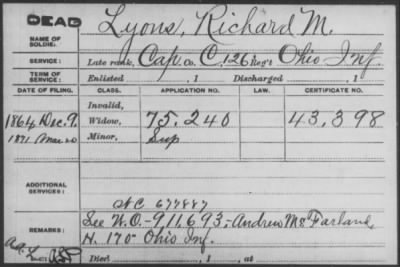 DEAD
NAME OF SOLDIER: Lyons, Richard M.
SERVICE: Late rank, Cap. Co. C, 126 Reg't Ohio Inf.
TERM OF SERVICE: Enlisted , 1 Discharged , 1
DATE OF FILING. CLASS. APPLICATION NO. LAW. CERTIFICATE NO.
Invalid,
1864 Dec. 9. Widow, 75.240 43,398
1871 Mar 20 Minor, Sup
ADDITIONAL SERVICES:
WC 677887
REMARKS: See W.O.-911,693,-Andrew McFarland,
H. 170 Ohio Inf.
Died , 1 , at